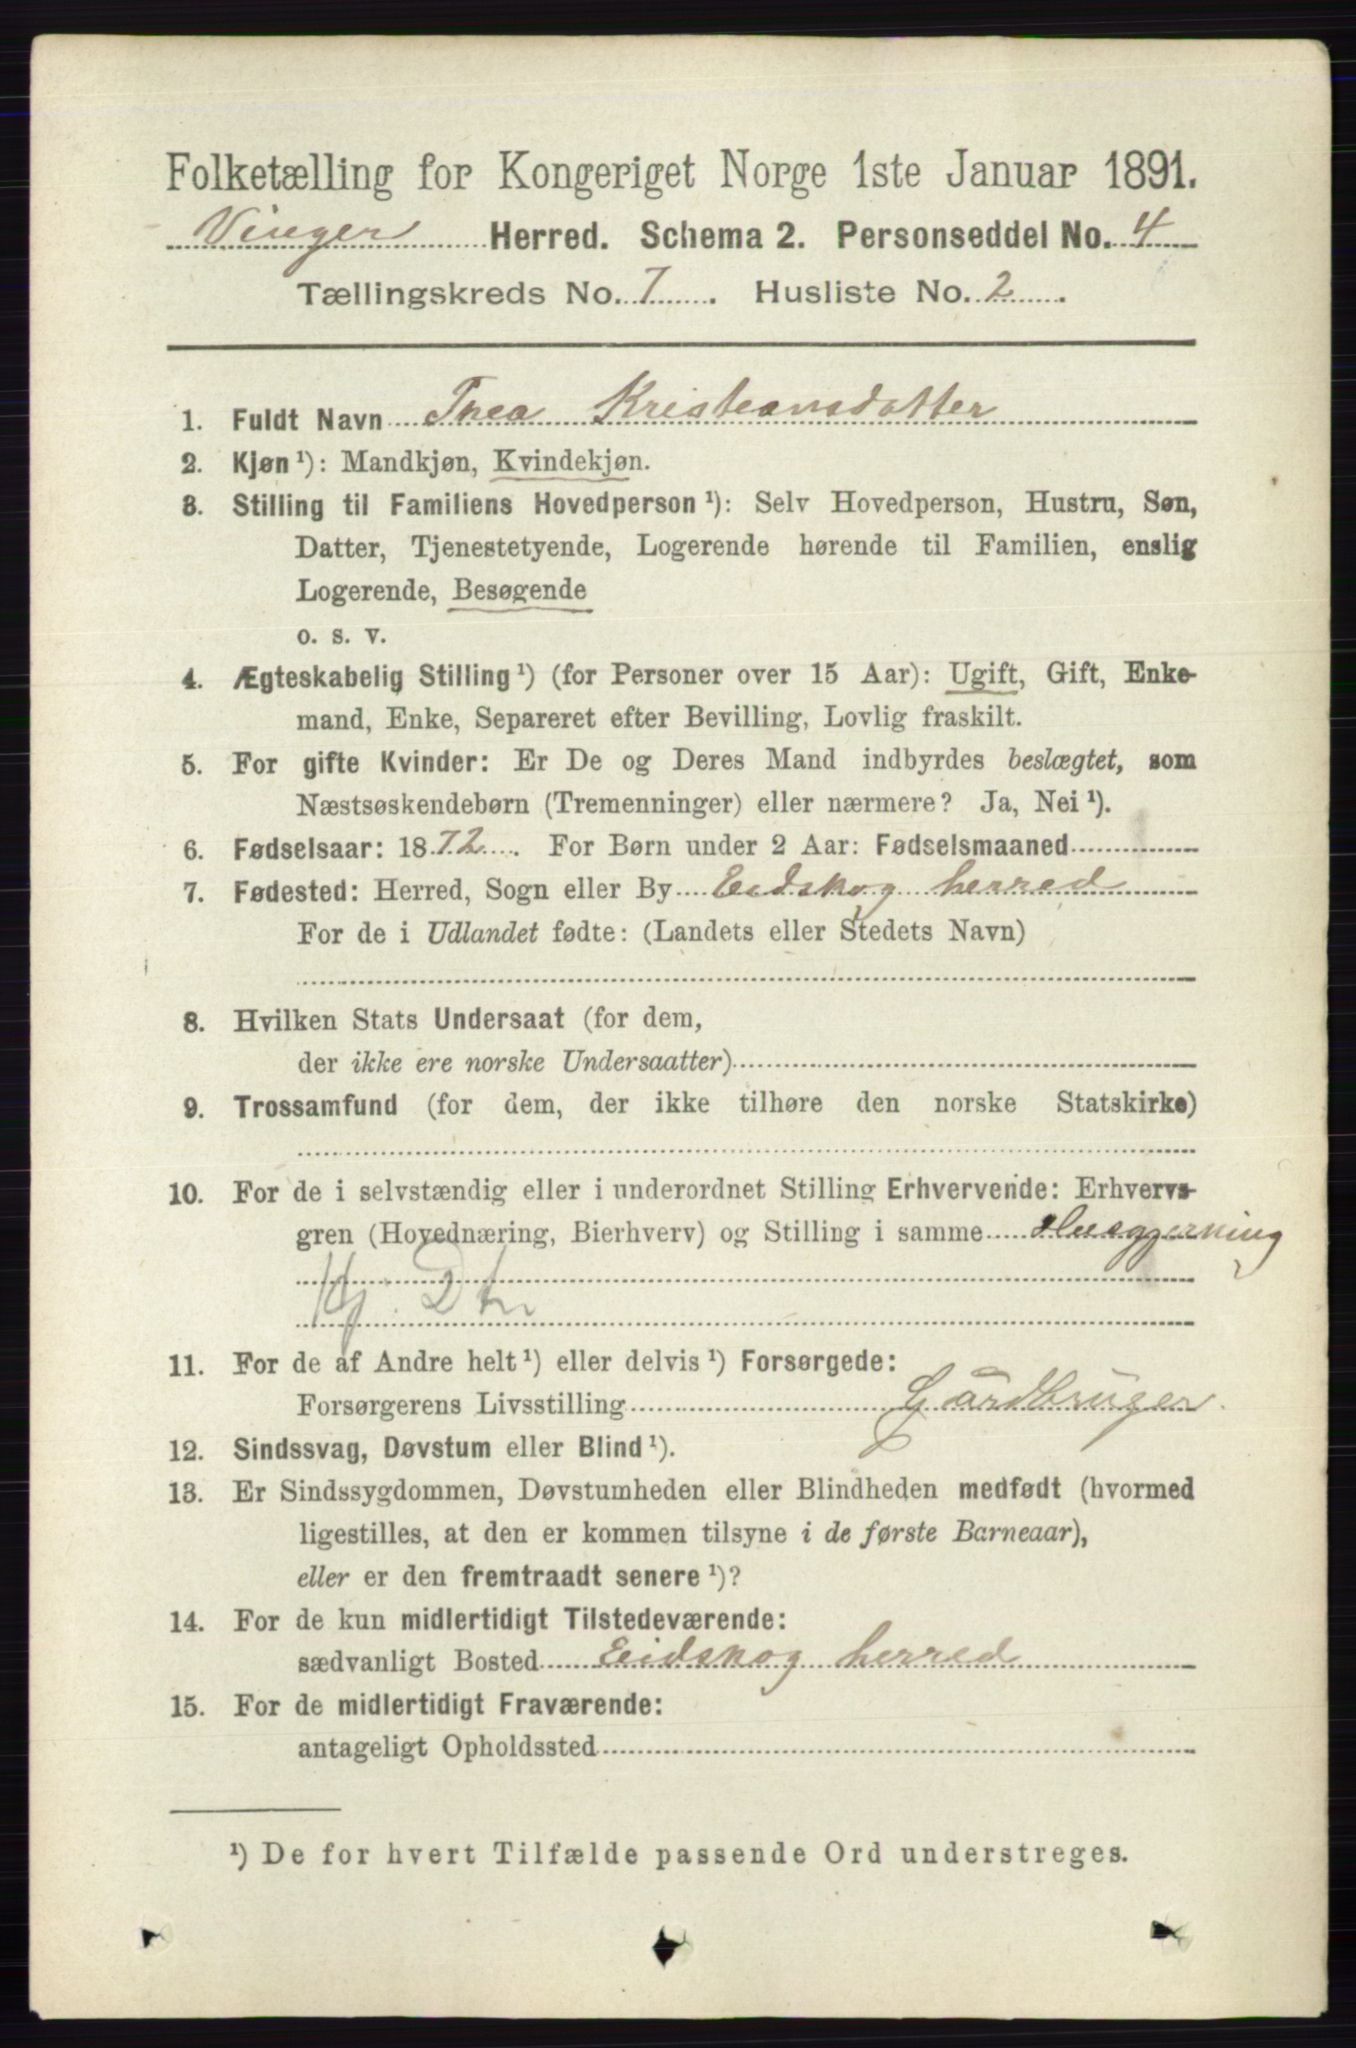 Folketælling for Kongeriget Norge 1ste Januar 1891.
Vinger Herred. Schema 2. Personseddel No. 4
Tællingskreds No. 7. Husliste No. 2.
1. Fuldt Navn Thea Kristiansdatter
2. Kjøn ¹): Mandkjøn, Kvindekjøn.
3. Stilling til Familiens Hovedperson ¹): Selv Hovedperson, Hustru, Søn,
Datter, Tjenestetyende, Logerende hørende til Familien, enslig
Logerende, Besøgende
o. s. v.
4. Ægteskabelig Stilling ¹) (for Personer over 15 Aar): Ugift, Gift, Enke-
mand, Enke, Separeret efter Bevilling, Lovlig fraskilt.
5. For gifte Kvinder: Er De og Deres Mand indbyrdes beslægtet, som
Næstsøskendebørn (Tremenninger) eller nærmere? Ja, Nei ¹).
6. Fødselsaar: 1872. For Børn under 2 Aar: Fødselsmaaned
7. Fødested: Herred, Sogn eller By Eidskog herred
For de i Udlandet fødte: (Landets eller Stedets Navn)
8. Hvilken Stats Undersaat (for dem,
der ikke ere norske Undersaatter)
9. Trossamfund (for dem, der ikke tilhøre den norske Statskirke)
10. For de i selvstændig eller i underordnet Stilling Erhvervende: Erhvervs-
gren (Hovednæring, Bierhverv) og Stilling i samme Husgjerning
Hj. Dtr
11. For de af Andre helt ¹) eller delvis ¹) Forsørgede:
Forsørgerens Livsstilling Gårdbruger.
12. Sindssvag, Døvstum eller Blind ¹).
13. Er Sindssygdommen, Døvstumheden eller Blindheden medfødt (hvormed
ligestilles, at den er kommen tilsyne i de første Barneaar),
eller er den fremtraadt senere ¹)?
14. For de kun midlertidigt Tilstedeværende:
sædvanligt Bosted Eidskog herred
15. For de midlertidigt Fraværende:
antageligt Opholdssted
¹) De for hvert Tilfælde passende Ord understreges.